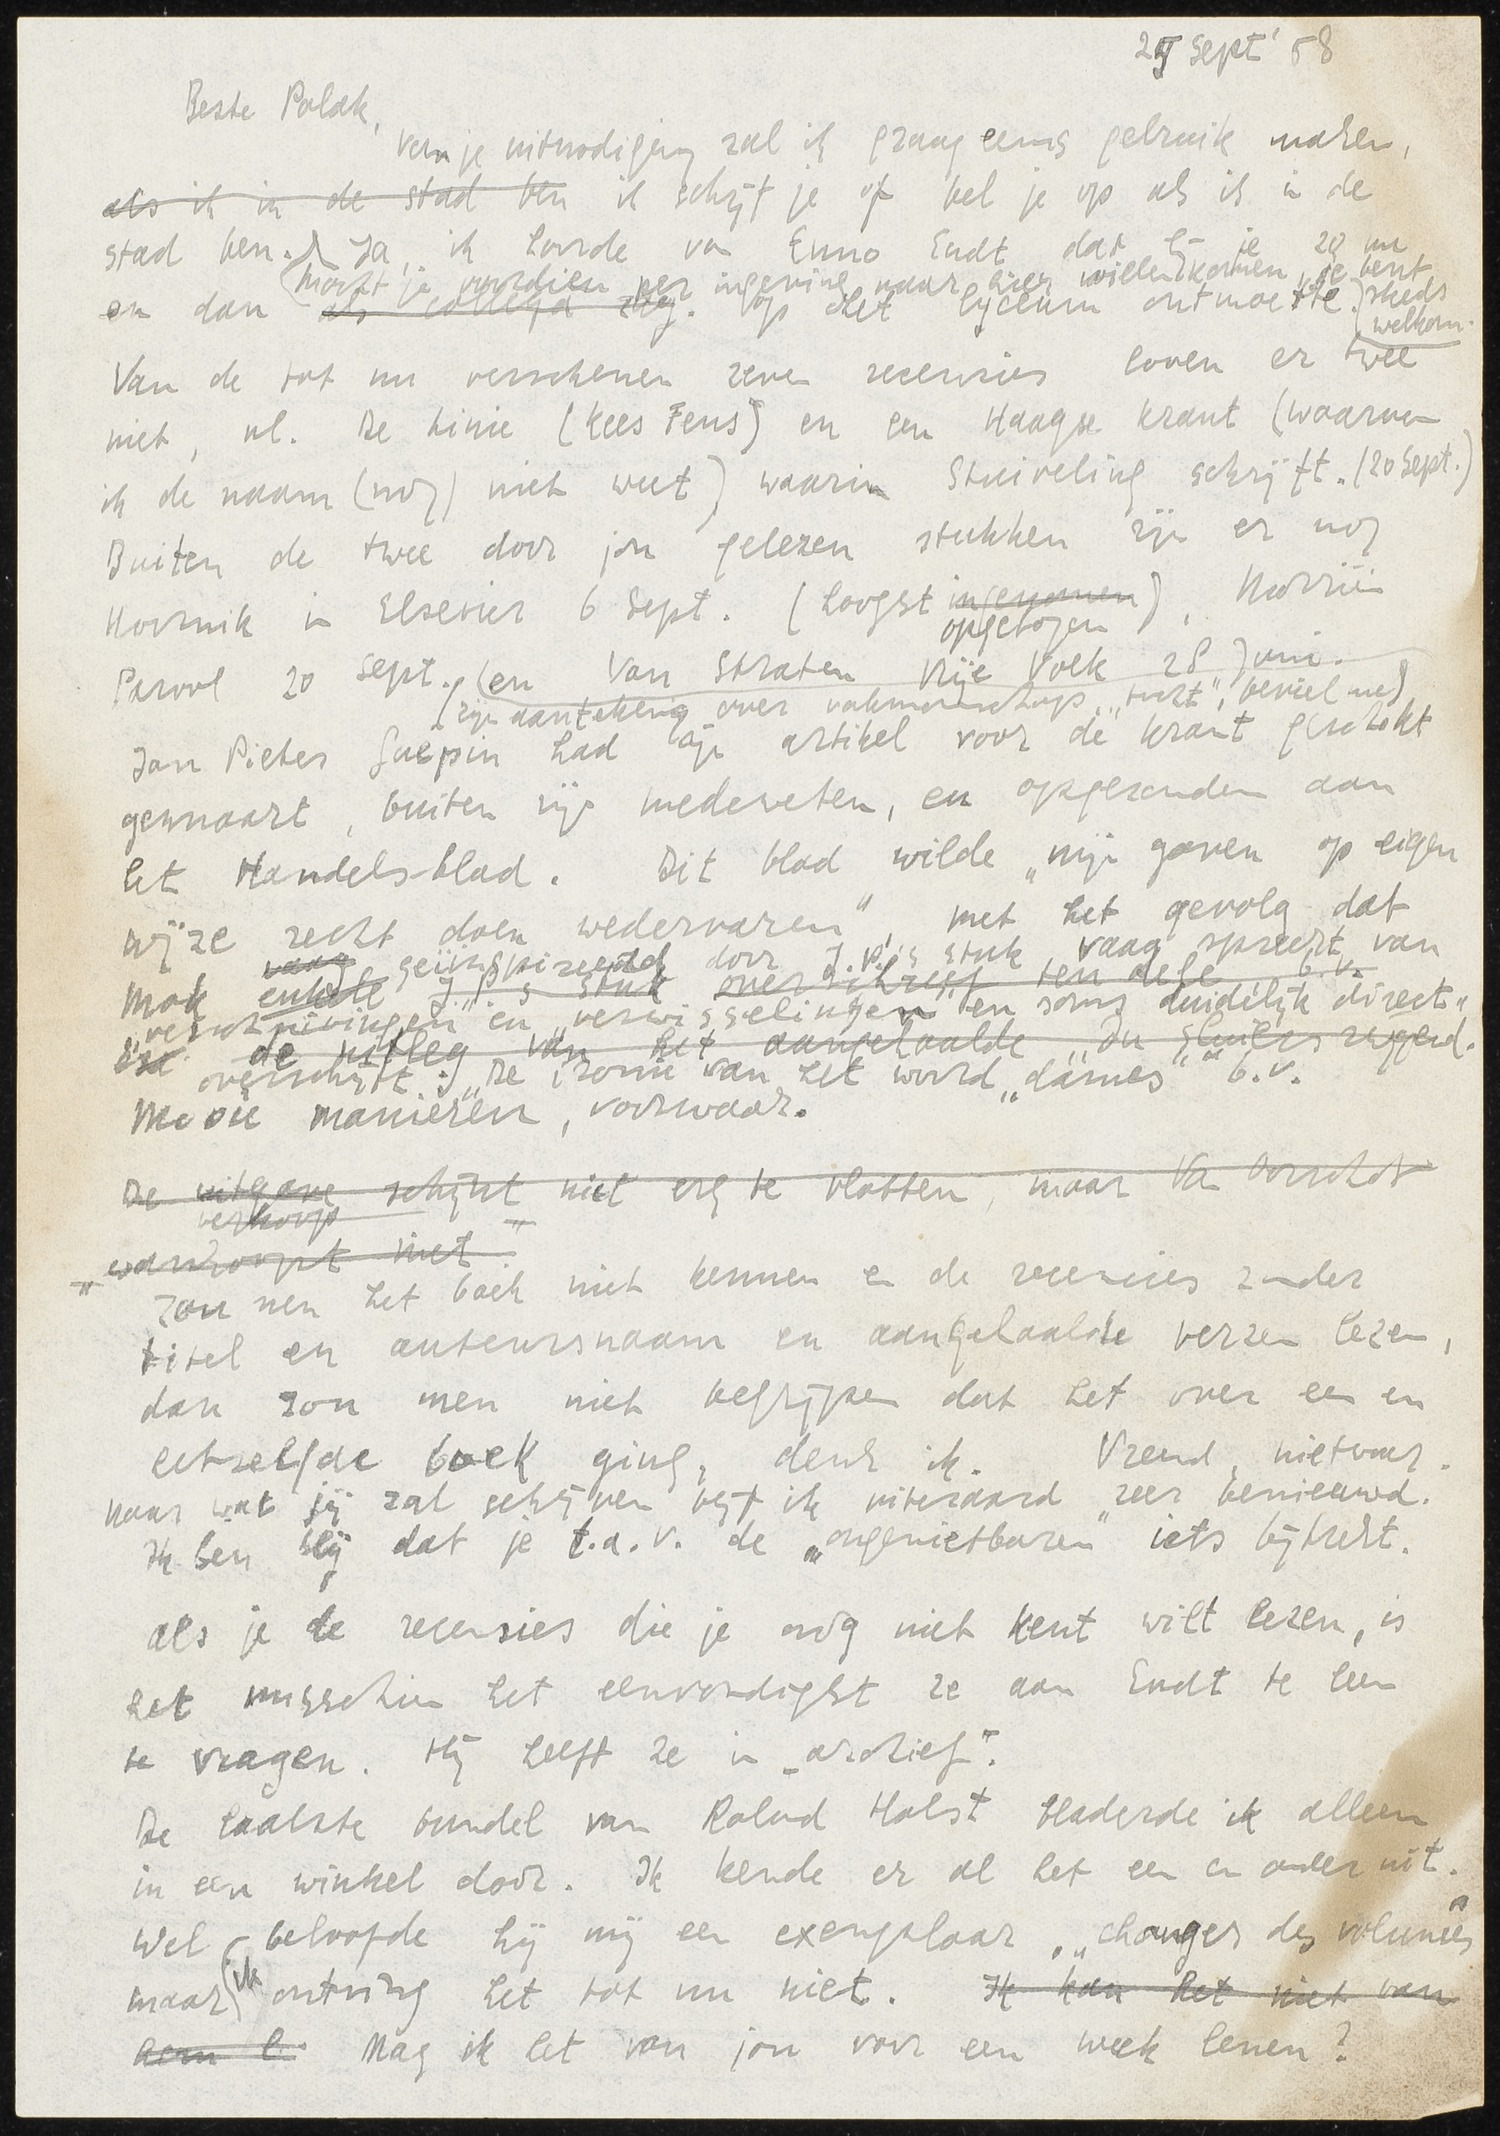 25 Sept' 58
Beste Polak,
van je uitnodiging zal ik graag eens gebruik maken,
als ik in de stad ben ik schrijf je of bel je op als ik in de
stad ben. Ja, ik hoorde van Enno Endt dat hij je zo nu
(mocht je voordien per ingeving naar hier willen komen, je bent steeds welkom.)
en dan als collega zag. op het lyceum ontmoette.
Van de tot nu verschenen zeven recensies loven er twee
niet, nl. De Linie (Kees Fens) en een Haagse krant (waarvan
ik de naam (nog) niet weet) waarin Stuiveling schrijft. (20 Sept.)
Buiten de twee door jou gelezen stukken zijn er nog
Hoornik in Elsevier 6 Sept. (hoogst ingenomen), Morriën
opgetogen
Parool 20 Sept. (en Van Straten Vrije Volk 28 Juni.
(zijn aantekening over vakmanschap, "tucht", beviel me)
Jan Pieter Guépin had zijn artikel voor de krant geschikt
gemaakt, buiten mijn medeweten, en opgezonden aan
het Handelsblad. Dit blad wilde "mijn gaven op eigen
wijze recht doen wedervaren", met het gevolg dat
vaag geïnspireerd door J.P.'s stuk vaag spreekt van
Mok enkele J.P.'s stuk overschreef ten dele b.v.
"verschuivingen" en "verwisselingen" en soms duidelijk direct
de uitleg van het aangehaalde
overschrijft: "De ironie van het woord "dames" b.v.
Mooie manieren, voorwaar.
De uitgave schijnt niet erg te vlotten, maar Van Oorschot
verkoop
"wanhoopt niet"
Zou men het boek niet kennen en de recensies zonder
titel en auteursnaam en aangehaalde verzen lezen,
dan zou men niet begrijpen dat het over een en
hetzelfde boek ging, denk ik. Vreemd, nietwaar.
Naar wat jij zal schrijven blijf ik uiteraard zeer benieuwd.
Ik ben blij dat je t.a.v. de "ongenietbaren" iets bijtrekt.
Als je de recensies die je nog niet kent wilt lezen, is
het misschien het eenvoudigst ze aan Endt te leen
te vragen. Hij heeft ze in "archief".
De laatste bundel van Roland Holst bladerde ik alleen
in een winkel door. Ik kende er al het een en ander uit.
Wel beloofde hij mij een exemplaar, "changer des volumes"
maar ik ontving het tot nu niet. Ik kan het niet van
hem l. Mag ik het van jou voor een week lenen?